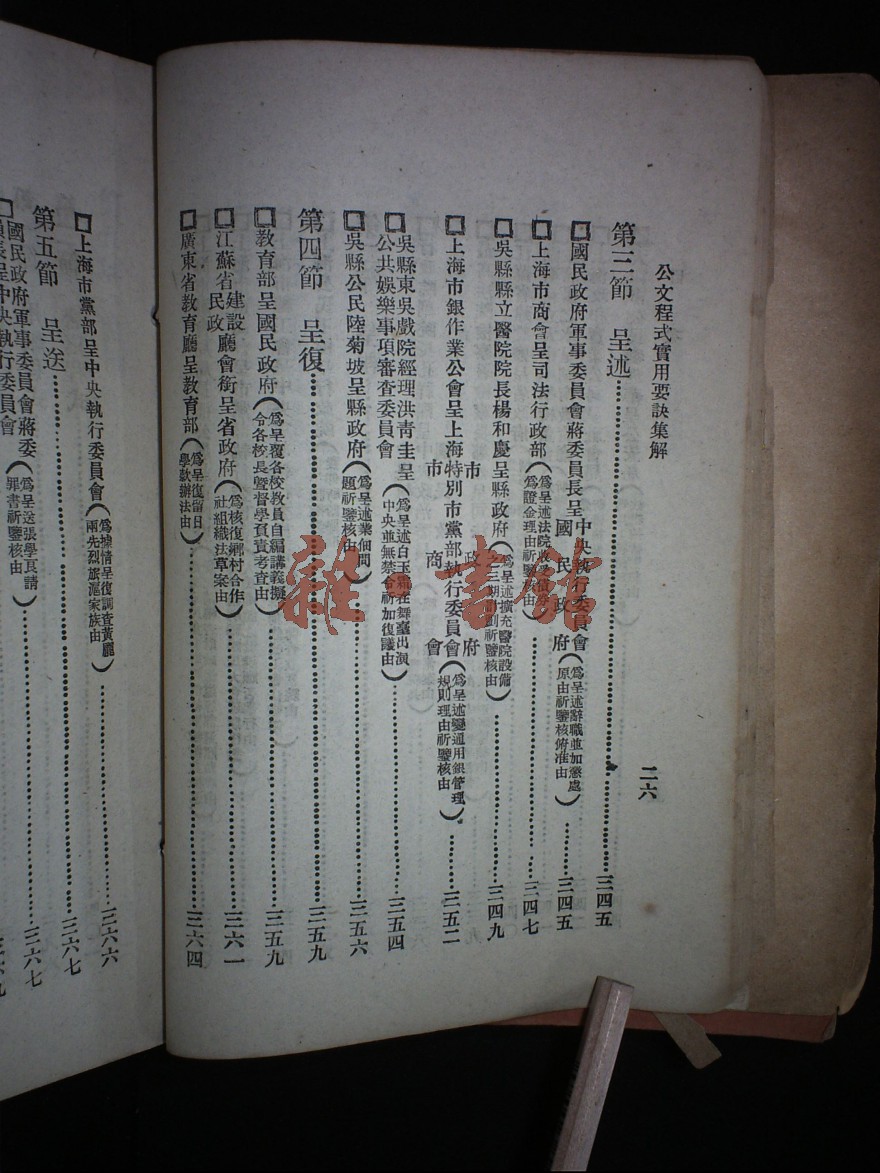 公文程式實用要訣集解
二六
第三節 呈述 三四五
國民政府軍事委員會蔣委員長呈中央執行委員會國民政府(爲呈述辭職並加懲處原由祈鑒核俯准由) 三四五
上海市商會呈司法行政部(爲呈述法院收受債券爲證金理由祈鑒核由) 三四七
吳縣縣立醫院院長楊和慶呈縣政府(爲呈述擴充醫院設備之三期計劃祈鑒核由) 三四九
上海市銀作業公會呈上海特別市黨部執行委員會市政府市商會(爲呈述變通用銀管理規則理由祈鑒核由) 三五二
吳縣東吳戲院經理洪青圭呈公共娛樂事項審查委員會(爲呈述白玉霜在舞臺出演中央並無禁令祈加復議由) 三五四
吳縣公民陸菊坡呈縣政府(爲呈述業佃問題祈鑒核由) 三五六
第四節 呈復 三五九
教育部呈國民政府(爲呈覆各校教員自編講義擬令各校長暨督學負責考查由) 三五九
江蘇省建設民政廳會銜呈省政府(爲核復鄉村合作社組織法草案由) 三六一
廣東省教育廳呈教育部(爲呈復留日學款辦法由) 三六四
上海市黨部呈中央執行委員會(爲據情呈復調查黃龐兩先烈旅滬家族由) 三六六
第五節 呈送 三六七
國民政府軍事委員會蔣委員長呈中央執行委員會(爲呈送張學良請罪書祈鑒核由) 三六七
雜書館